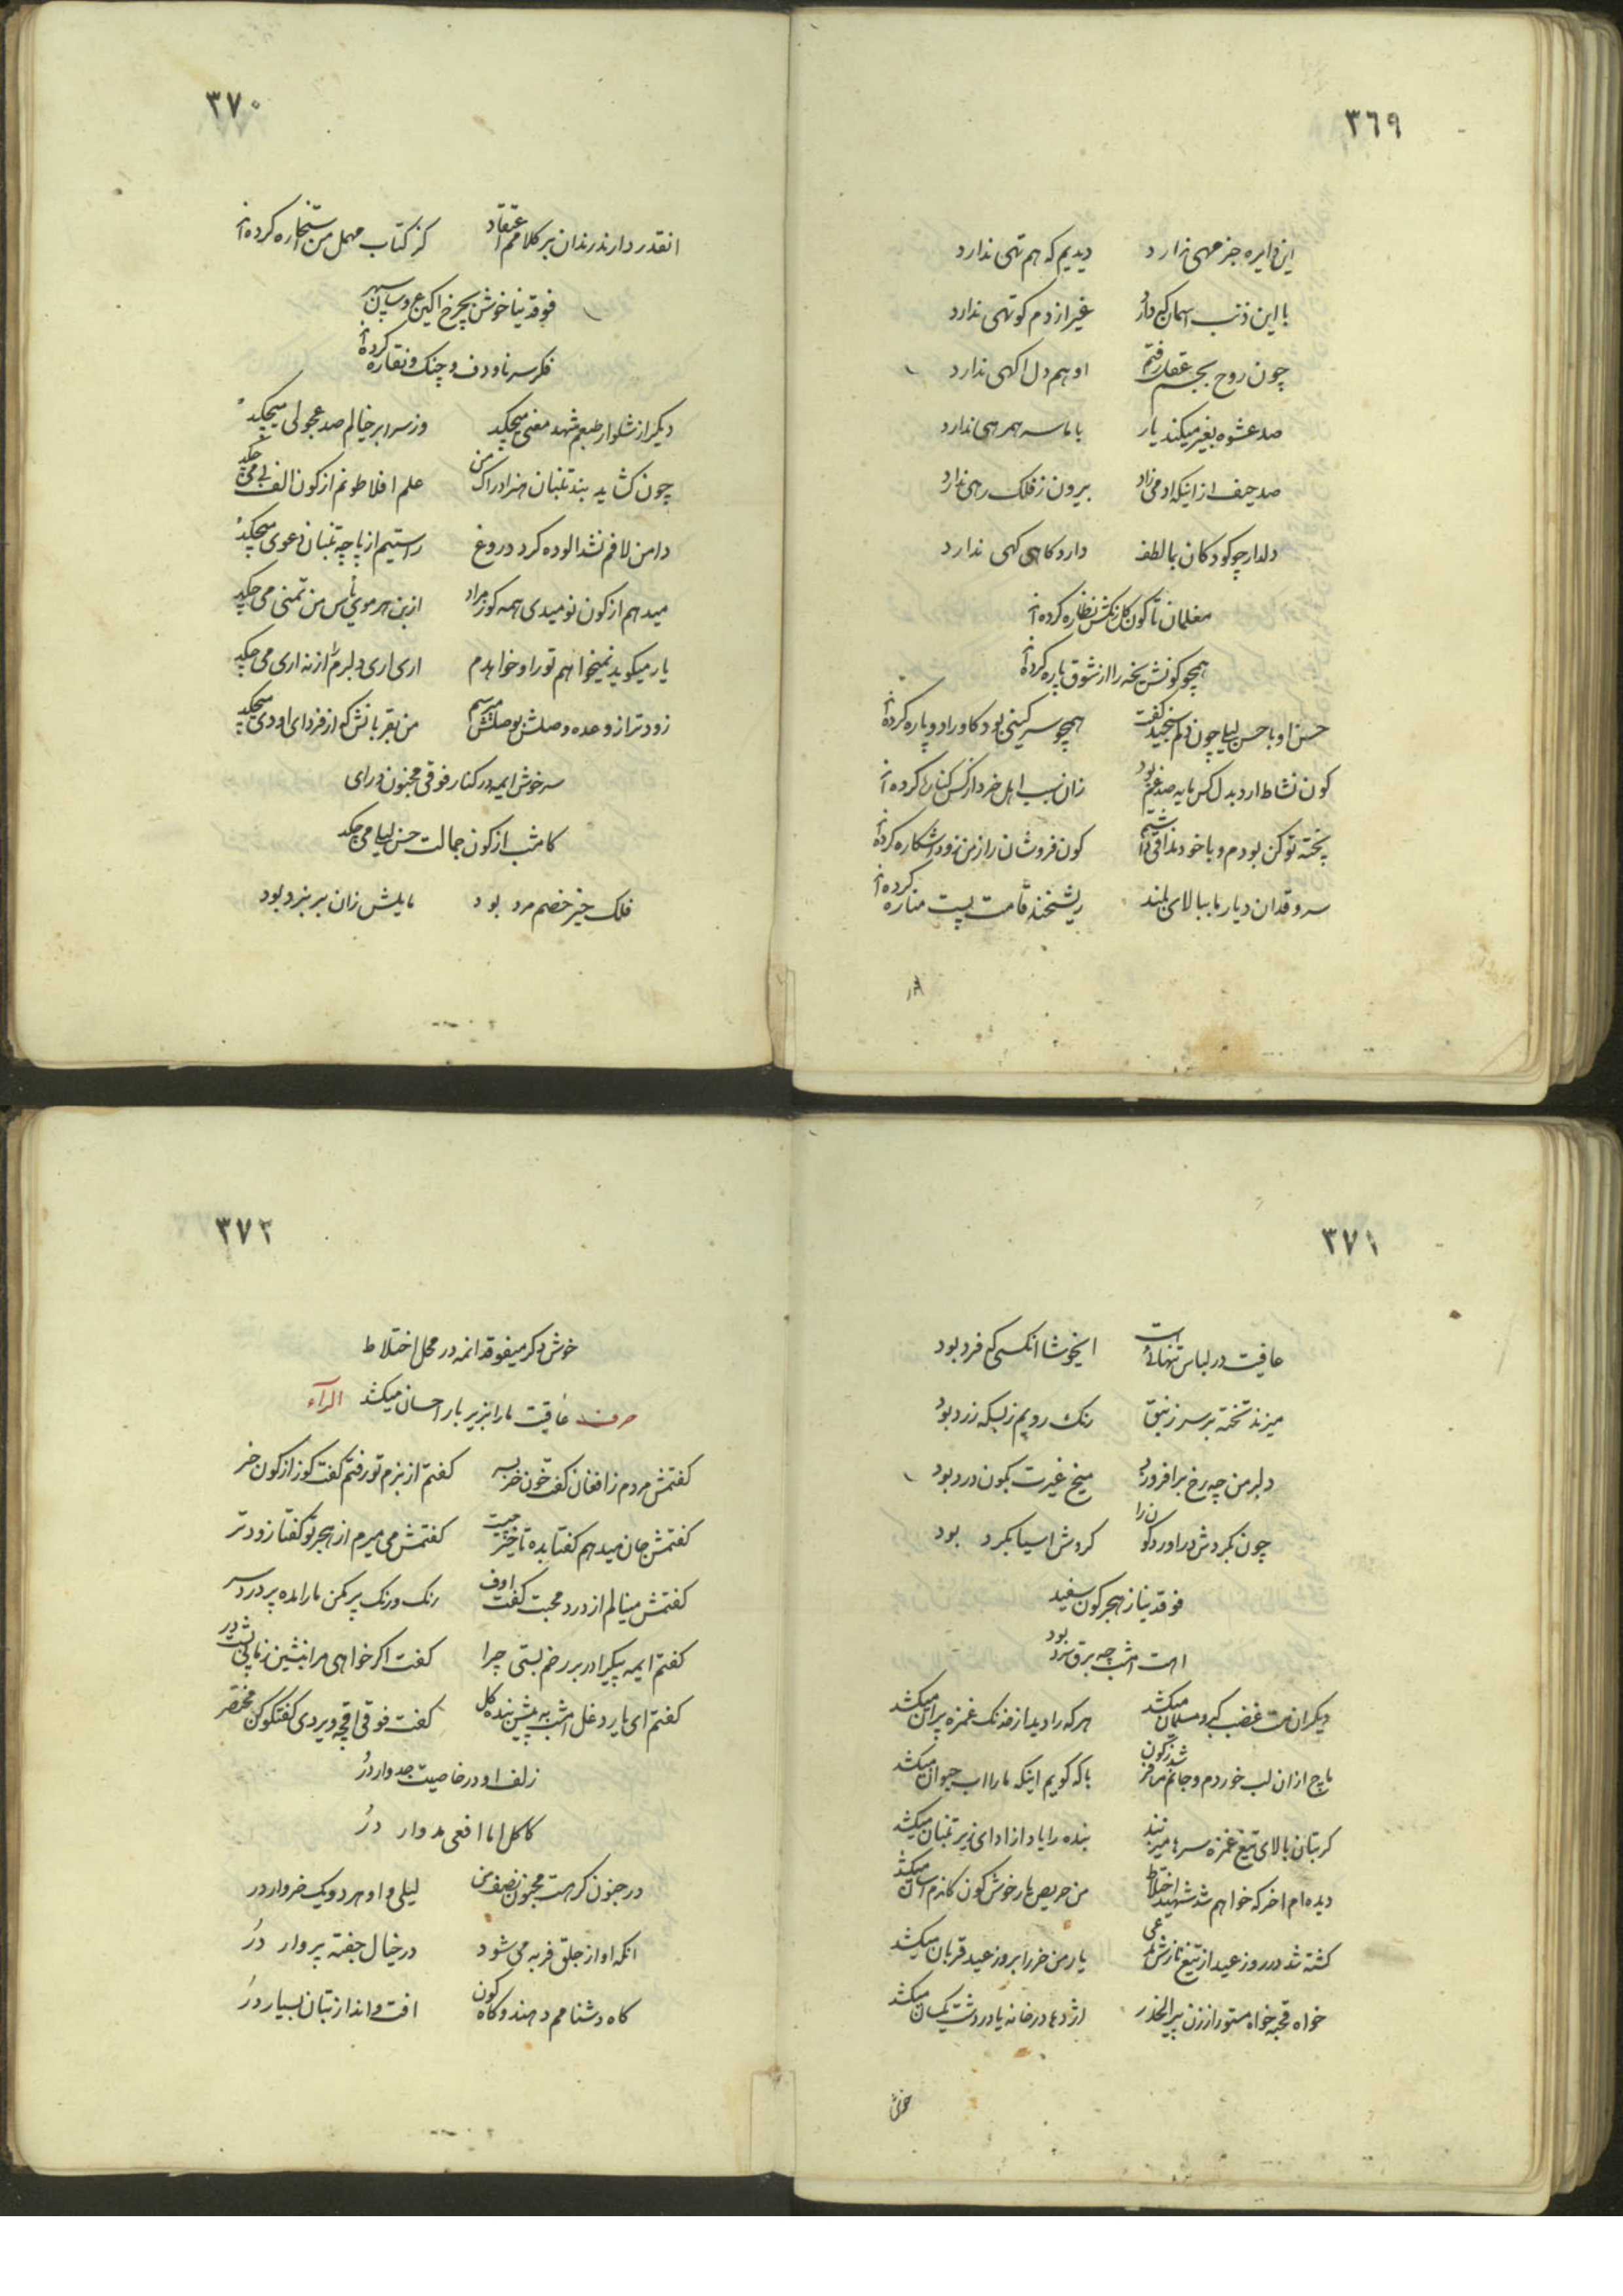 ٣٦٩
این دایره جز مهی ندارد دیدیم که هم تهی ندارد
با این ذنب اسمان که دارد غیر از دم کوتهی ندارد
چون روح بجسم عقل رفتم او هم دل اکهی ندارد
صد عشوه بغیر میکند یار با ما سر همرهی ندارد
صد حیف از اینکه ادمی زاد بیرون ز فلک رهی ندارد
دلدار چو کودکان بما لطف دارد کاهی کهی ندارد
مغلمان تا کون کل رنکش نظاره کرده‌اند
همچو کونش یخه را از شوق پاره کرده‌اند
حسن او با حسن لیلی چون دلم سنجید کفت همچو سرکینی بود کاو را دو پاره کرده‌اند
کون نشاط ارد بدل کس مایه صد غم بود زان سبب اهل خرد از کس کناره کرده‌اند
پخته تو کن بودم و با خود مذاقی داشتم کون فروشان راز من زود اشکاره کرده‌اند
سرو قدان دیار ما ببالای بلند ریشخند قامت پست مناره کرده‌اند
٣٧٠
انقدر دارند رندان بر کلامم اعتقاد کز کتاب مهمل من استخاره کرده‌اند
فوقدینا خوش بچرخ اکین عروسان سپهر
فکر سرنا و دف و چنک و نقاره کرده‌اند
دیکر از شلوار طبعم شهد معنی میچکید وز سر ابر خیالم صد عجولی میچکید
چون کشاید بند تنبان هنر ادراک من علم افلاطونم از کون الف بی می چکد
دامن لافم نشد الوده کرد دروغ راستیم از پاچه تنبان دعوی میچکید
میدهم از کون نومیدی همه کوز مراد از بن هر موی یأس من تمنی می چکید
یار میکوید نمیخواهم تو را و خواهدم اری اری دلبرم را از نه اری می چکید
زودتر از وعده وصلش بوصلش میرسم من بقربانش که از فردای او دی میچکید
سرخوش ایمه در کنار فوقی مجنون درای
کامشب از کون جمالت حسن لیلی می چکد
فلک حیز خصم مرد بود مایلش زان بر نبرد بود
٣٧١
عافیت در لباس تنهائی است ایخوشا انکسی که فرد بود
میزند تخته بر سر زنبق رنک رویم ز بسکه زرد بود
دلبر من چه رخ برافروزد میخ غیرت بکون درد بود
چون بکردش دراورد کون را کردش اسیا بکرد بود
فوقدینا ز هجر کون سفید
اهت امشب چه برق سرد بود
دیکران مست غضب کبر و مسلمان میکشد هر که را دید از خدنک غمزه پران میکشد
ماچ از ان لب خوردم و جانم مرا قز شد ز کون با که کویم اینکه ما را اب حیوان میکشد
کر بتان بالای تیغ غمزه سرها میزنند بنده را یاد از ادای زیر تنبان میکشد
دیده‌ام اخر که خواهم شد شهید اختلاط من حریص یار خوش کون کاذرم اسان میکشد
کشته شد در روز عید از تیغ نازش مدعی یار من خر را بروز عید قربان میکشد
خواه قحبه خواه مستور از زن پیر الحذر اژدها در خانه یا در دشت یکسان میکشد
٣٧٢
خوش دکر میفوقد انمه در محل اختلاط
عاقبت ما را بزیر بار احسان میکشد
حرف الرآء
کفتمش مردم ز افغان کفت خون خر بسر کفتم از بزم تو رفتم کفت کوز از کون خر
کفتمش جان میدهم کفتا بده تاخیر چیست کفتمش می میرم از هجر تو کفتا زودتر
کفتمش مینالم از درد محبت کفت اوف رنک و رنک پر مکن ما را مده پر درد سر
کفتم ایمه پیکیرا در بر رخم بستی چرا کفت اکر خواهی مرا بنشین زمانی پشت در
کفتم ای یار دغل امشب به پیش بنده کل کفت فوقی اقچه ویردی کفتکو کن مختصر
زلف او در خاصیت جدوار در
کاکل اما افعی مدوار در
در جنون کر هست مجنون نصف من لیلی و او هر دو یک خروار در
انکه او از جلق فربه می شود در خیال جفته پروار در
کاه دشنامم دهند و کاه کون افت و انداز بتان بسیار در